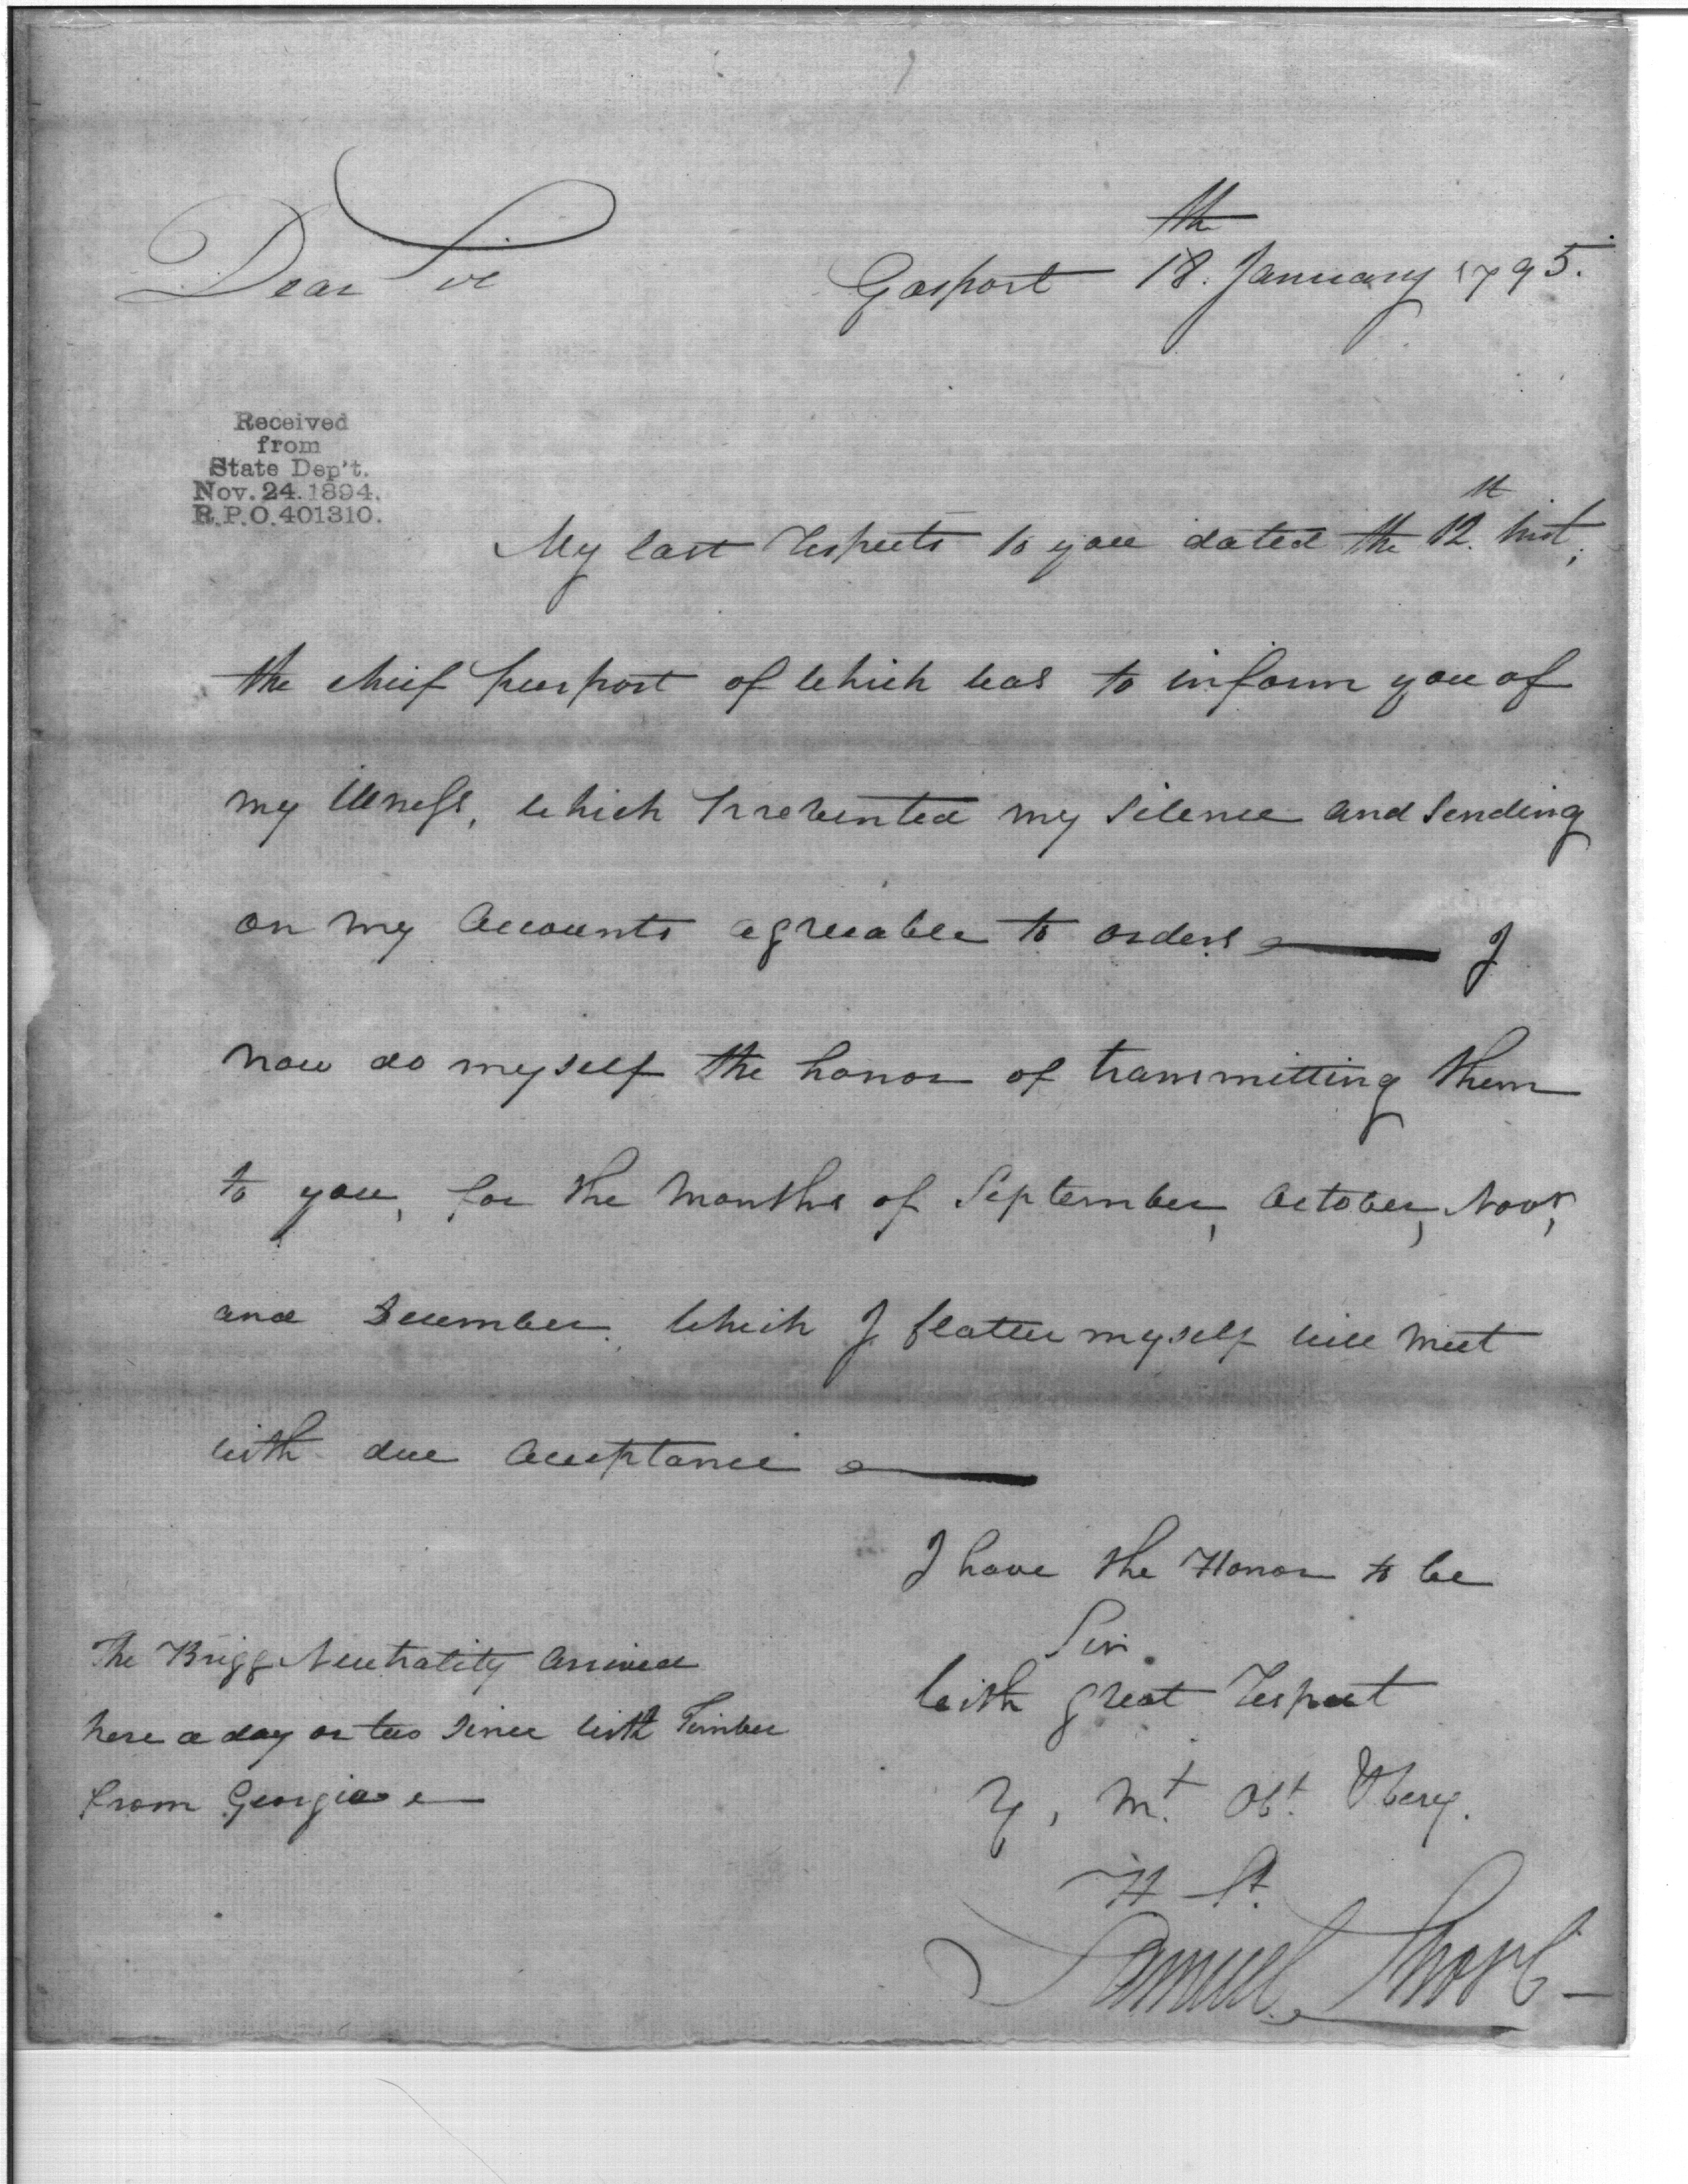 Dear Sir
Gosport 18.th January 1795.
Received
from
State Dep't.
Nov. 24. 1894.
R.P.O. 401310.
My last respects to you dated the 12.th inst,
the cheif purport of which was to inform you of
my illness, which prevented my silence and sending
on my accounts agreeable to orders — I
now do myself the honor of transmitting them
to you, for the months of September, October, Novr,
and December. which I flatter myself will meet
with due acceptance —
I have the Honor to be
Sir.
with great respect
Y, Mt. Obt. Very.
H St.
Samuel
The Brigg Neutrality arrived
here a day or two since with Timber
from Georgia —